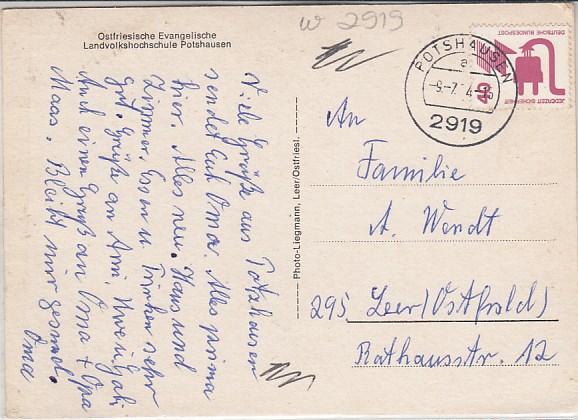 w 2919
Ostfriesische Evangelische
Landvolkshochschule Potshausen
Viele Grüße aus Potzhausen
sendet Euch Oma. Alles prima
hier. Alles neu. Haus und
Zimmer. Essen u. Trinken sehr
gut. Grüße an Uwe u. Gabi
Auch einen Gruß an Oma + Opa
Maas. Bleibt mir gesund.
Oma
Photo-Liegmann, Leer/Ostfriesl.
POTSHAUSEN
a
-9.-7. 4-15
2919
DEUTSCHE BUNDESPOST
JEDERZEIT SICHERHEIT
40
An
Familie
A. Wendt
295 Leer (Ostfrsld)
Rathausstr. 12